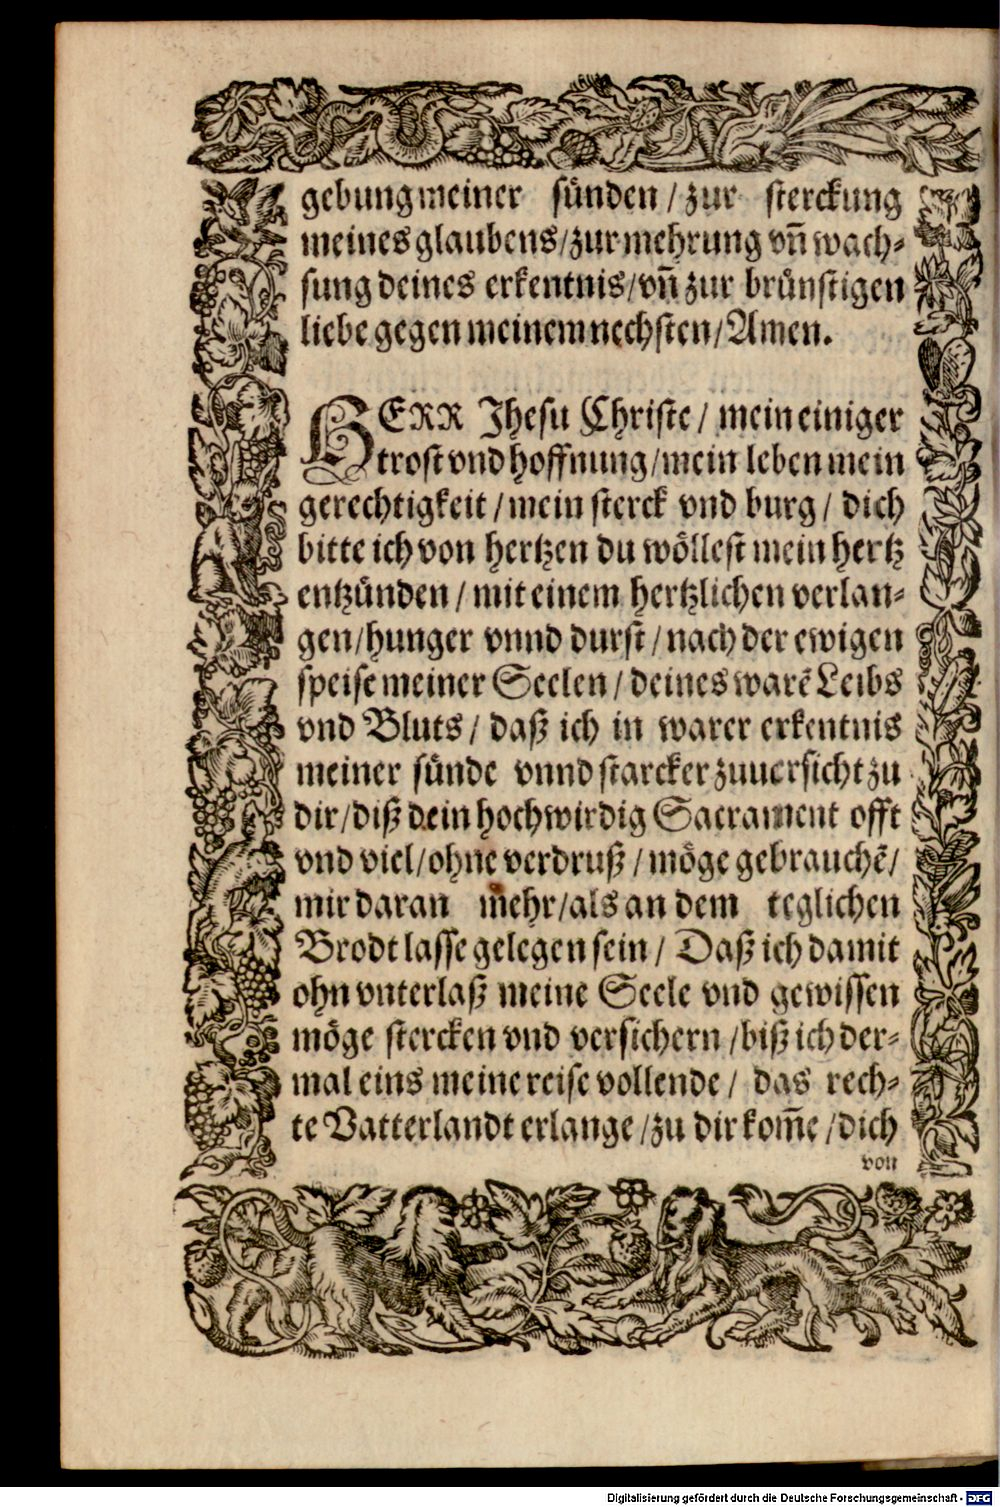 gebung meiner sünden / zur sterckung
meines glaubens/zur mehrung vñ wach-
sung deines erkentnis/vñ zur brünstigen
liebe gegen meinem nechsten/Amen.
HERR Jhesu Christe / mein einiger
trost vnd hoffnung/mein leben mein
gerechtigkeit / mein sterck vnd burg / dich
bitte ich von hertzen du wöllest mein hertz
entzünden / mit einem hertzlichen verlan-
gen/hunger vnnd durst / nach der ewigen
speise meiner Seelen / deines warẽ Leibs
vnd Bluts / daß ich in warer erkentnis
meiner sünde vnnd starcker zuuersicht zu
dir/diß dein hochwirdig Sacrament offt
vnd viel/ohne verdruß / möge gebrauchẽ/
mir daran mehr/als an dem teglichen
Brodt lasse gelegen sein / Daß ich damit
ohn vnterlaß meine Seele vnd gewissen
möge stercken vnd versichern /biß ich der-
mal eins meine reise vollende / das rech-
te Vatterlandt erlange /zu dir kom̃e /dich
von
Digitalisierung gefördert durch die Deutsche Forschungsgemeinschaft - DFG